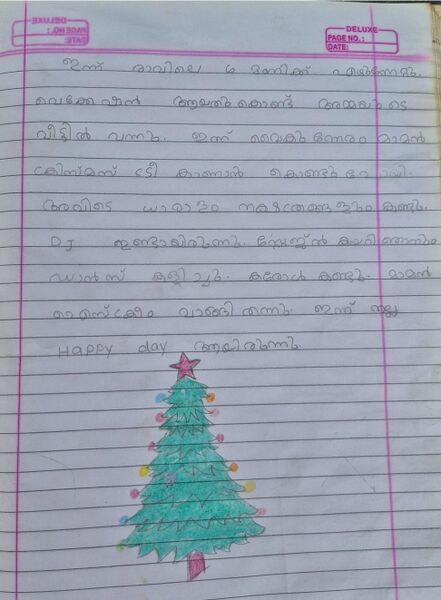 DELUXE
PAGE NO.:
DATE:
ഇന്ന് രാവിലെ 6 മണിക്ക് എഴുന്നേറ്റു.
വെക്കേഷൻ ആയതുകൊണ്ട് അമ്മയുടെ
വീട്ടിൽ വന്നു. ഇന്ന് വൈകുന്നേരം മാമൻ
ക്രിസ്മസ് ട്രീ കാണാൻ കൊണ്ടുപോയി.
അവിടെ ധാരാളം നക്ഷത്രങ്ങളും കണ്ടു.
DJ ഉണ്ടായിരുന്നു. സ്റ്റേജിൽ കയറി ഞാനും
ഡാൻസ് കളിച്ചു. കരോൾ കണ്ടു. മാമൻ
ഐസ്ക്രീം വാങ്ങി തന്നു. ഇന്ന് നല്ല
Happy day ആയിരുന്നു.